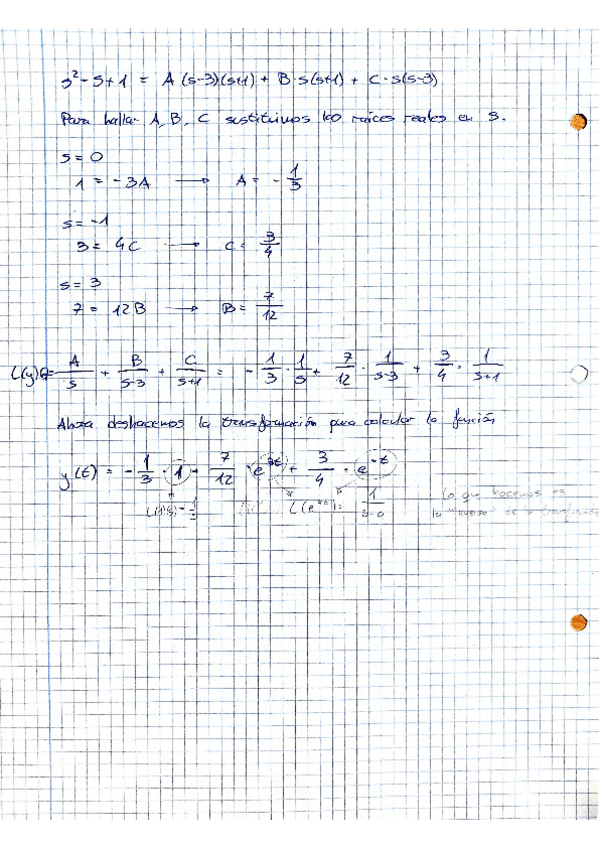 s² - s + 1 = A (s-3)(s+1) + B · s(s+1) + C · s(s-3)
Para hallar A, B, C sustituimos las raíces reales en s.
s = 0
1 = -3A → A = - 1/3
s = -1
3 = 4C → C = 3/4
s = 3
7 = 12B → B = 7/12
L(y) = A/s + B/(s-3) + C/(s+1) = - 1/3 · 1/s + 7/12 · 1/(s-3) + 3/4 · 1/(s+1)
Ahora deshacemos la transformación para calcular la función
y(t) = - 1/3 · 1 + 7/12 · e^{3t} + 3/4 · e^{-t}
lo que hacemos es
la "inversa" de la